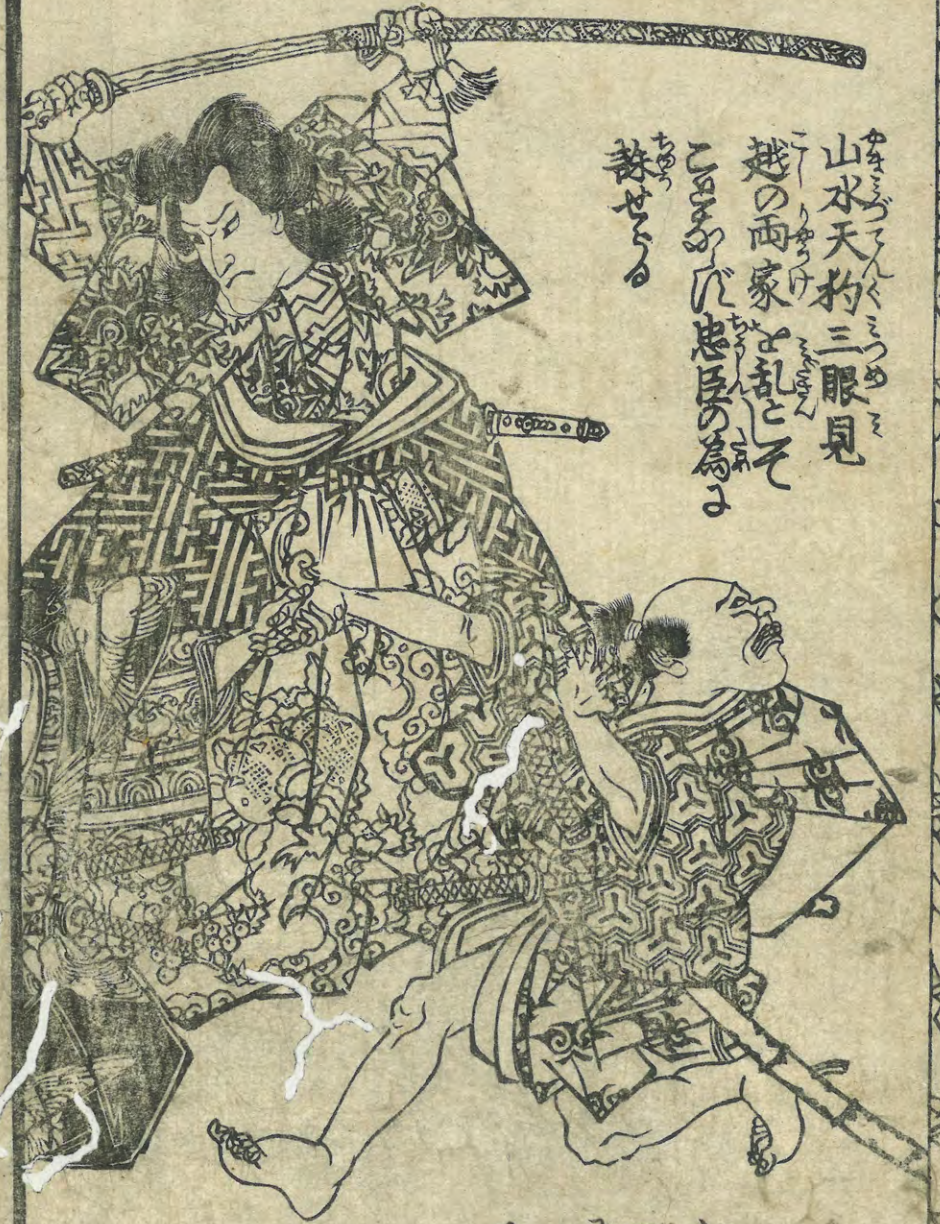 山水天狗三眼見
越の両家を乱として
ことならず忠臣の為に
誅せらる